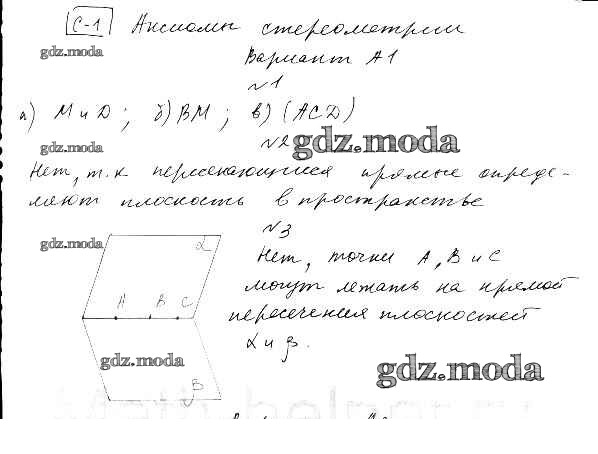 С-1 Аксиомы стереометрии
gdz.moda
Вариант А1
№1
а) М и D; б) ВМ; в) (ACD)
gdz.moda
№2
gdz.moda
Нет, т.к пересекающиеся прямые опреде-
ляют плоскость в пространстве
№3
gdz.moda
α
Нет, точки А, В и С
могут лежать на прямой
А В С
пересечения плоскостей
α и β.
gdz.moda
gdz.moda
β